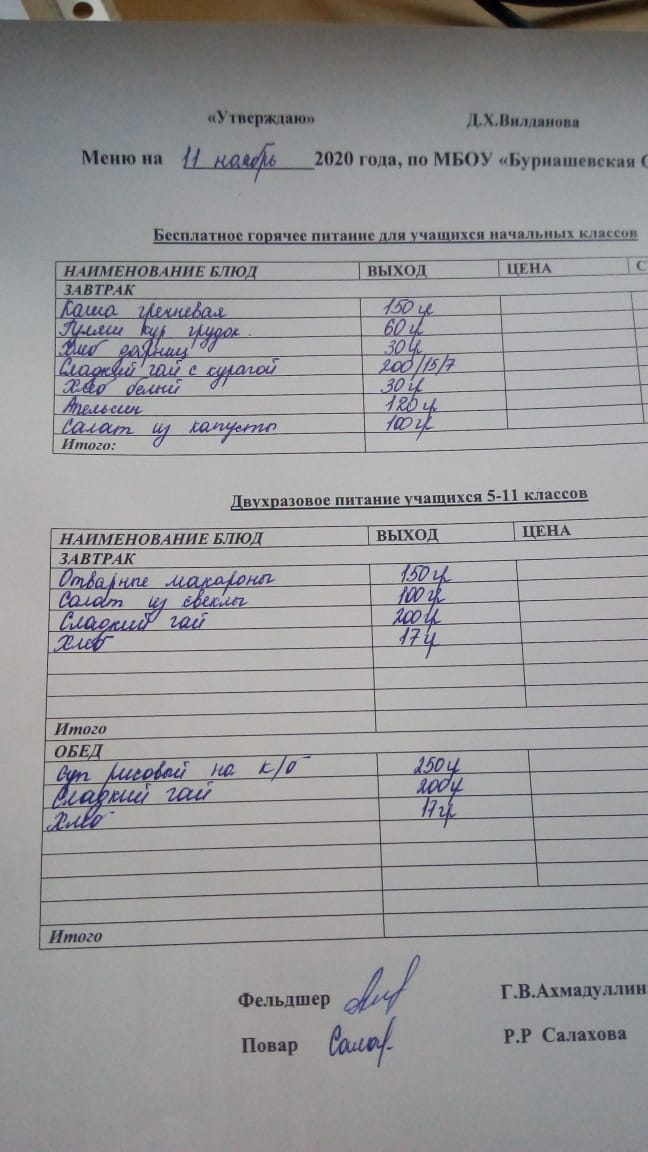 «Утверждаю» Д.Х.Вилданова
Меню на 11 ноябрь 2020 года, по МБОУ «Бурнашевская С
Бесплатное горячее питание для учащихся начальных классов
НАИМЕНОВАНИЕ БЛЮД ВЫХОД ЦЕНА С
ЗАВТРАК
Каша гречневая 150 гр
Гуляш кур грудок. 60 гр
Хлеб дарниц 30 гр
Сладкий чай с курагой 200/15/7
Хлеб белый 30 гр
Апельсин 120 гр
Салат из капусты 100 гр
Итого:
Двухразовое питание учащихся 5-11 классов
НАИМЕНОВАНИЕ БЛЮД ВЫХОД ЦЕНА
ЗАВТРАК
Отварные макароны 150 гр
Салат из свеклы 100 гр
Сладкий чай 200 гр
Хлеб 17 гр
Итого
ОБЕД
Суп рисовый на к/б 250 гр
Сладкий чай 200 гр
Хлеб 17 гр
Итого
Фельдшер Г.В.Ахмадуллин
Повар Р.Р Салахова